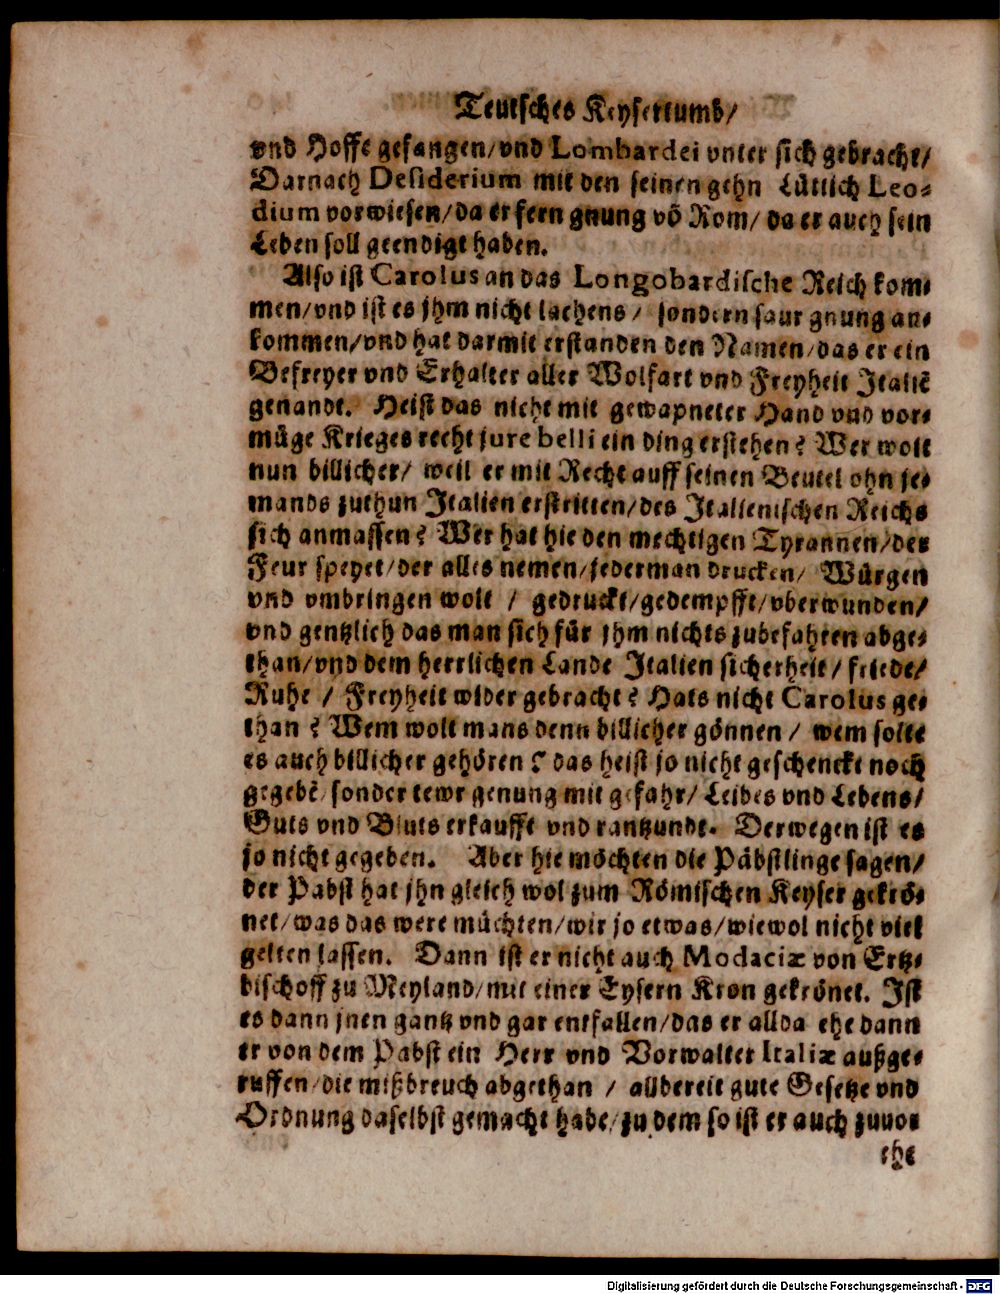 Teutsches Keysertumb/
vnd Hoffe gefangen/vnd Lombardei vnter sich gebracht/
Darnach Desiderium mit den seinen gehn Lüttich Leo-
dium vorwiesen/da er fern gnung võ Rom/ da er auch sein
Leben soll geendigt haben.
Also ist Carolus an das Longobardische Reich kom-
men/vnd ist es jhm nicht lachens/ sondern saur gnung an-
kommen/vnd hat darmit erstanden den Namen/das er ein
Befreyer vnd Erhalter aller Wolfart vnd Freyheit Italiẽ
genandt. Heist das nicht mit gewapneter Hand vnd vor-
müge Krieges recht jure belli ein ding erstehen? Wer wolt
nun billicher/ weil er mit Recht auff seinen Beutel ohn je-
mands zuthun Italien erstritten/des Italienischen Reichs
sich anmassen? Wer hat hie den mechtigen Tyrannen/der
Feur speyet/der alles nemen/jederman drucken/ Würgen
vnd vmbringen wolt / gedruckt/gedempfft/vberwunden/
vnd gentzlich das man sich für jhm nichts zubefahren abge-
than/vnd dem herrlichen Lande Italien sicherheit/friede/
Ruhe / Freyheit wider gebracht? Hats nicht Carolus ge-
than? Wem wolt mans denn billicher gönnen / wem solte
es auch billicher gehören? das heist jo nicht geschenckt noch
gegebẽ/sonder tewr genung mit gefahr/ Leibes vnd Lebens/
Guts vnd Bluts erkaufft vnd rantzundt. Derwegen ist es
jo nicht gegeben. Aber hie möchten die Päbstlinge sagen/
der Pabst hat jhn gleich wol zum Römischen Keyser gekrö-
net/was das were müchten/wir jo etwas/wiewol nicht viel
gelten lassen. Dann ist er nicht auch Modaciæ von Ertz-
bischoff zu Meyland/mit einer Eysern Kron gekrönet. Ist
es dann jnen gantz vnd gar entfallen/das er allda ehe dann
er von dem Pabst ein Herr vnd Vorwalter Italiæ außge-
ruffen/die mißbreuch abgethan / allbereit gute Gesetze vnd
Ordnung daselbst gemacht habe/zu dem so ist er auch zuuor
ehe
Digitalisierung gefördert durch die Deutsche Forschungsgemeinschaft - DFG